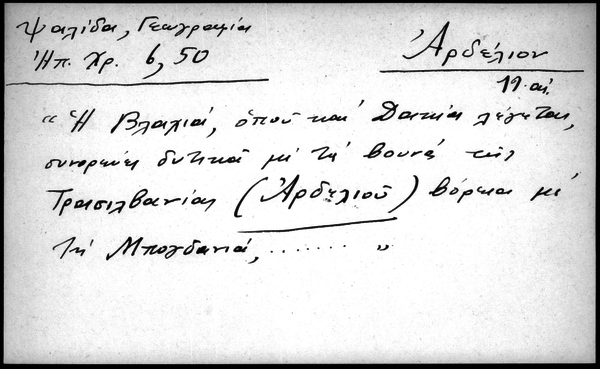 Ψαλίδα, Γεωγραφία
Ἠπ. Χρ. 6, 50
Ἀρδέλιον
19 αἰ.
"Ἡ Βλαχιά, ὁποῦ καὶ Δακία λέγεται,
συνορεύει δυτικὰ μὲ τὰ βουνὰ τῆς
Τρασιλβανίας (Ἀρδελιοῦ) βόρεια μὲ
τὴ Μπογδανιά, ........ "